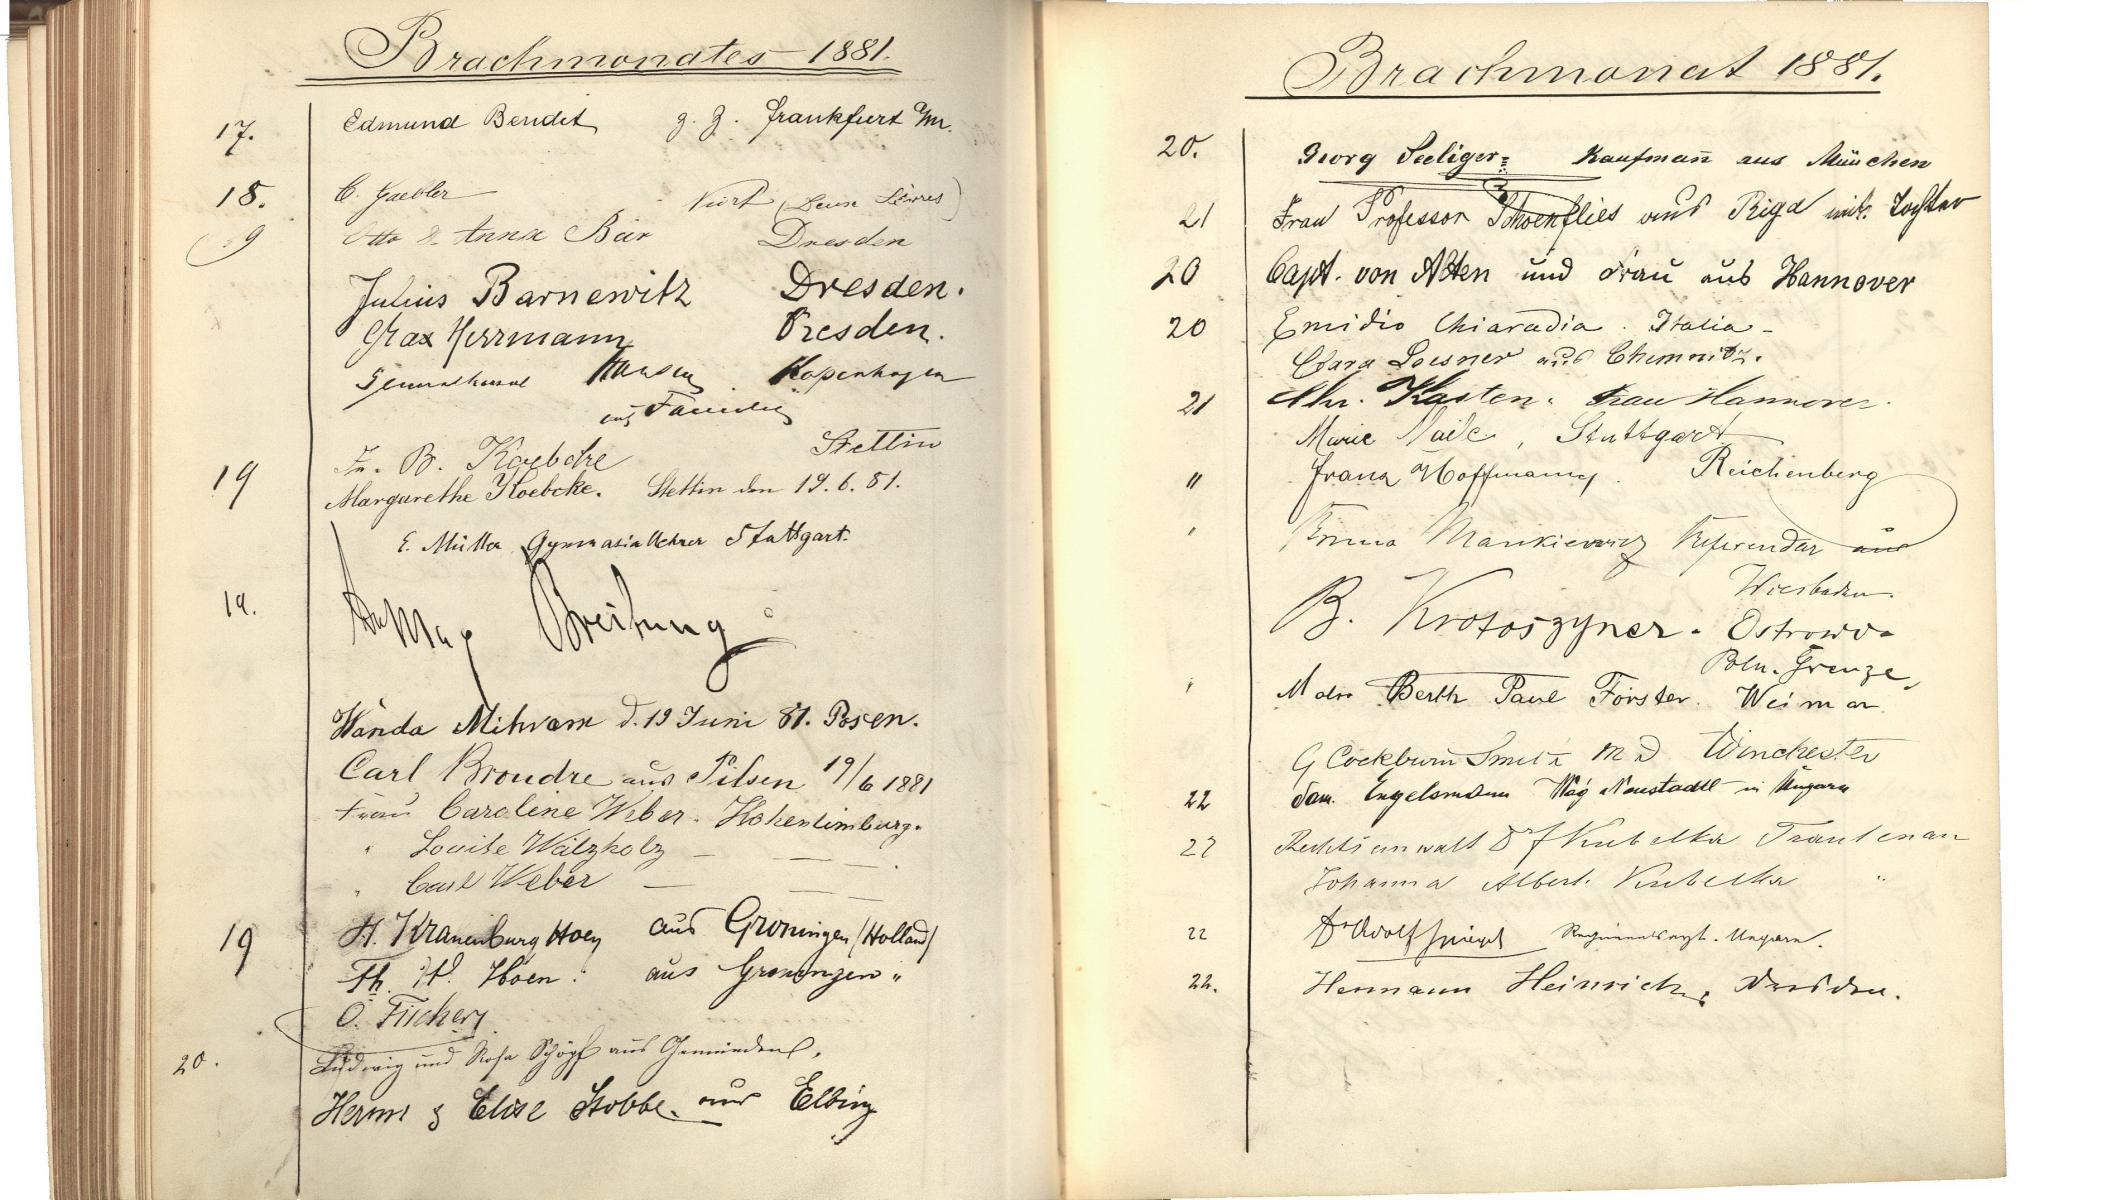 Brachmonates 1881.
17. Edmund Bendit g. Z. Frankfurt M.
18. C. Gaebler Niort (Deux Sèvres)
19 Otto & Anna Bär Dresden
Julius Barnewitz Dresden.
Max Herrmann Dresden.
Generalkonsul Hansen Kopenhagen
Familie
19 Fr. B. Koebcke Stettin
Margarethe Koebcke. Stettin den 19. 6. 81.
E. Müller Gymnasiallehrer Stuttgart.
19. Max Breitung
Wanda d. 19 Juni 81. Posen.
Carl aus Pilsen 19/6 1881
Frau Caroline Weber. Hohenlimburg.
" Louise Wälzholz — —
" Carl Weber — —
19 H. Kranenburg Hoen aus Groningen (Holland)
Th. H. Hoen. aus Groningen "
O. Fischer
20. Ludwig und Rosa Schöpf aus
Herm & Elise Stobbe. aus Elbing
Brachmonat 1881.
20. Georg Seeliger Kaufmañ aus München
21 Frau Professor Schoenflies aus Riga mit Tochter
20 Capt. von Alten und Frau aus Hannover
20 Emidio Chiaradia. Italia
Clara Loesner aus Chemnitz.
21 Chr. Kasten. Frau Hannover.
Marie, Stuttgart
" Franz Hoffmann. Reichenberg
" Mankiewicz Referendar aus
Wiesbaden.
B. Krotoszyner. Ostrowo
Poln. Grenze
" Paul Förster. Weimar
G Cockburn Smith M D Winchester
22 Sam. Engelsmann Wág Neustadtl in Ungarn
22 Rechtsanwalt Dr Kubelka Trautenau
Johanna Albert. Kubelka "
22 Dr Adolf Spiegel Regimentsarzt. Ungarn.
22. Hermann Heinrich, Dresden.